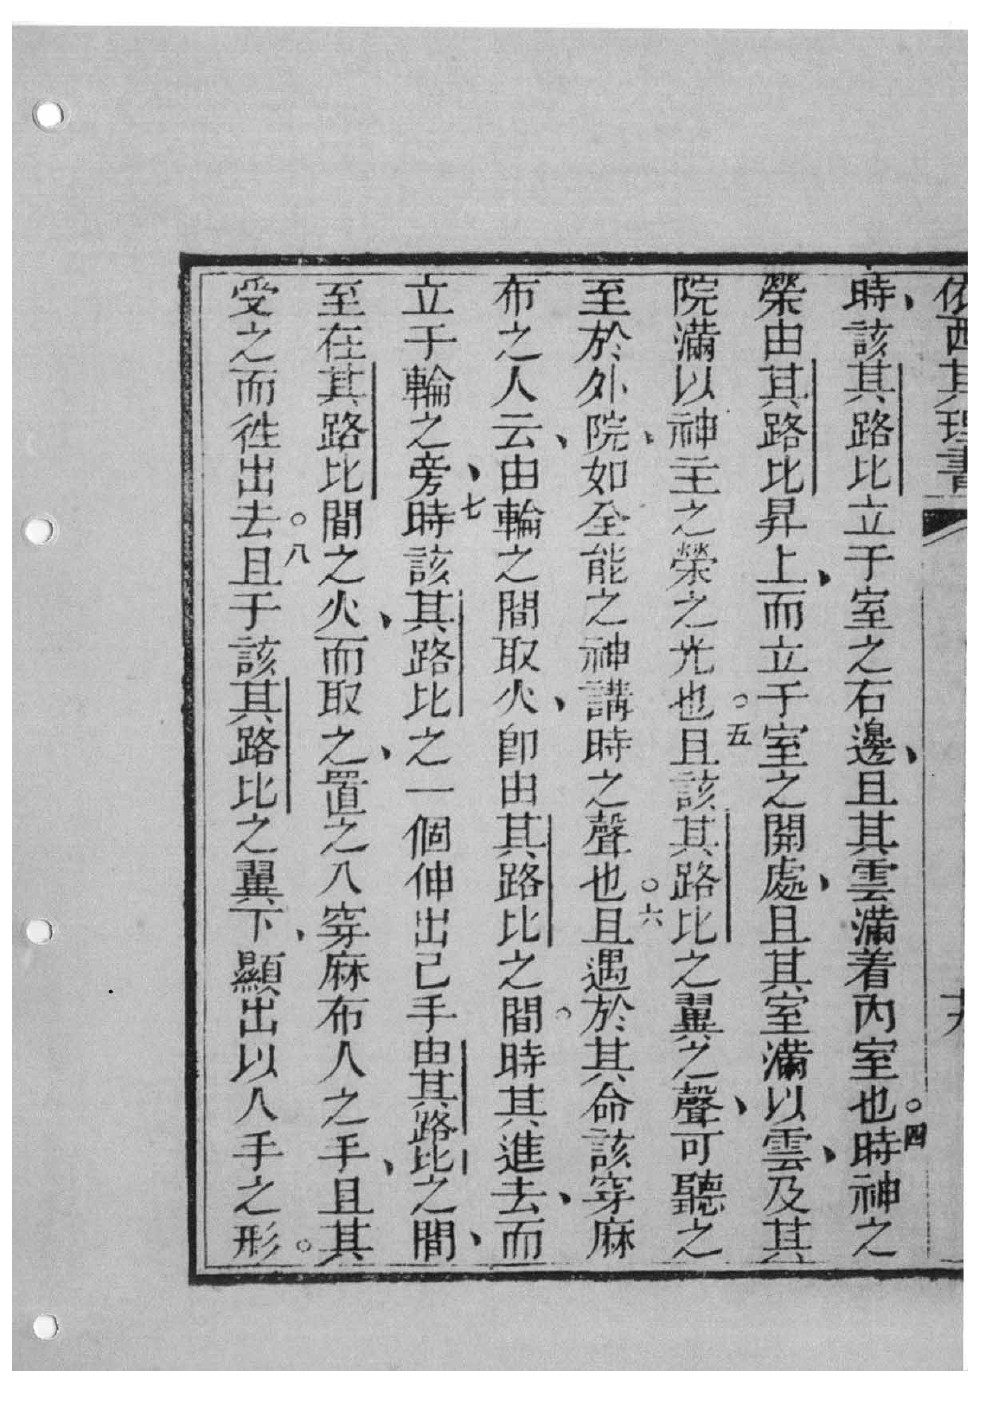 依西其理書
時、該其路比立于室之右邊、且其雲滿着內室也。四時神之
榮由其路比昇上、而立于室之開處、且其室滿以雲、及其
院滿以神主之榮之光也。五且該其路比之翼之聲、可聽之
至於外院、如全能之神講時之聲也。六且遇於其命該穿麻
布之人云、由輪之間取火、卽由其路比之間。時其進去、而
立于輪之旁、七時該其路比之一個伸出己手由其路比之間、
至在其路比間之火、而取之、置之入穿麻布人之手、且其
受之而徃出去。八且于該其路比之翼下、顯出以人手之形。